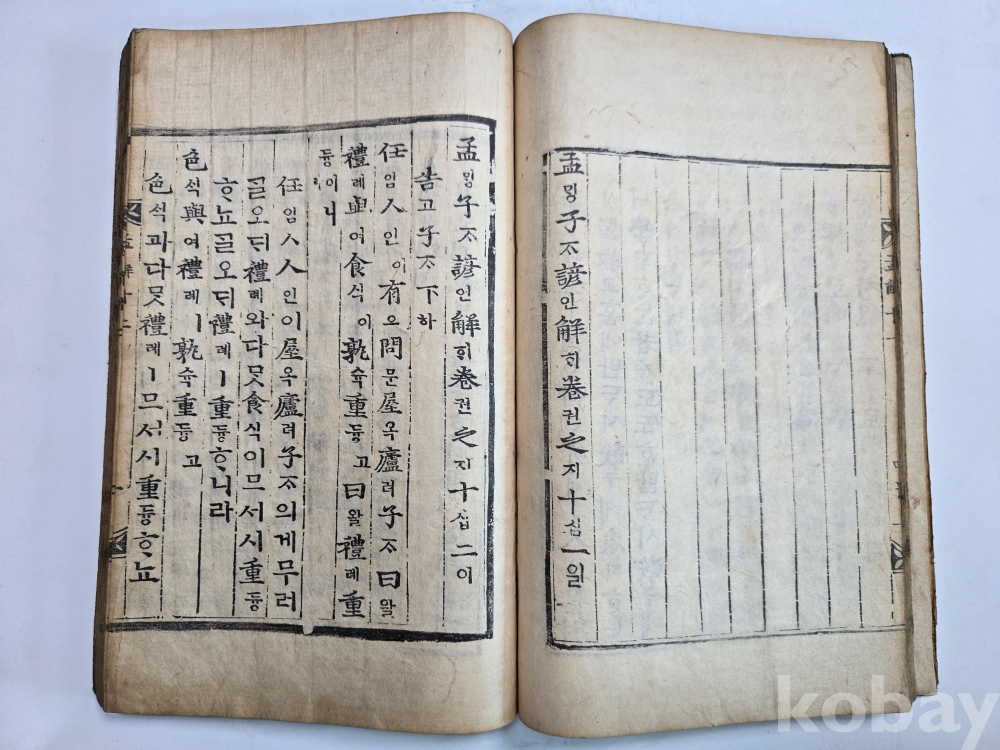 孟ᄆᆡᆼ子ᄌᆞ諺언解ᄒᆡ卷권之지十십一일
孟ᄆᆡᆼ子ᄌᆞ諺언解ᄒᆡ卷권之지十십二이
告고子ᄌᆞ下하
任임人인이有유問문屋옥廬려子ᄌᆞ曰왈
禮례與여食식이孰슉重듕고曰왈禮례重
듕이니
任임ㅅ人인이屋옥廬려子ᄌᆞ의게무러
ᄀᆞᆯ오ᄃᆡ禮례와다ᄆᆞᆺ食식이므서시重듕
ᄒᆞ뇨ᄀᆞᆯ오ᄃᆡ禮례ㅣ重듕ᄒᆞ니라
色ᄉᆡᆨ與여禮례ㅣ孰슉重듕고
色ᄉᆡᆨ과다ᄆᆞᆺ禮례ㅣ므서시重듕ᄒᆞ뇨
kobay